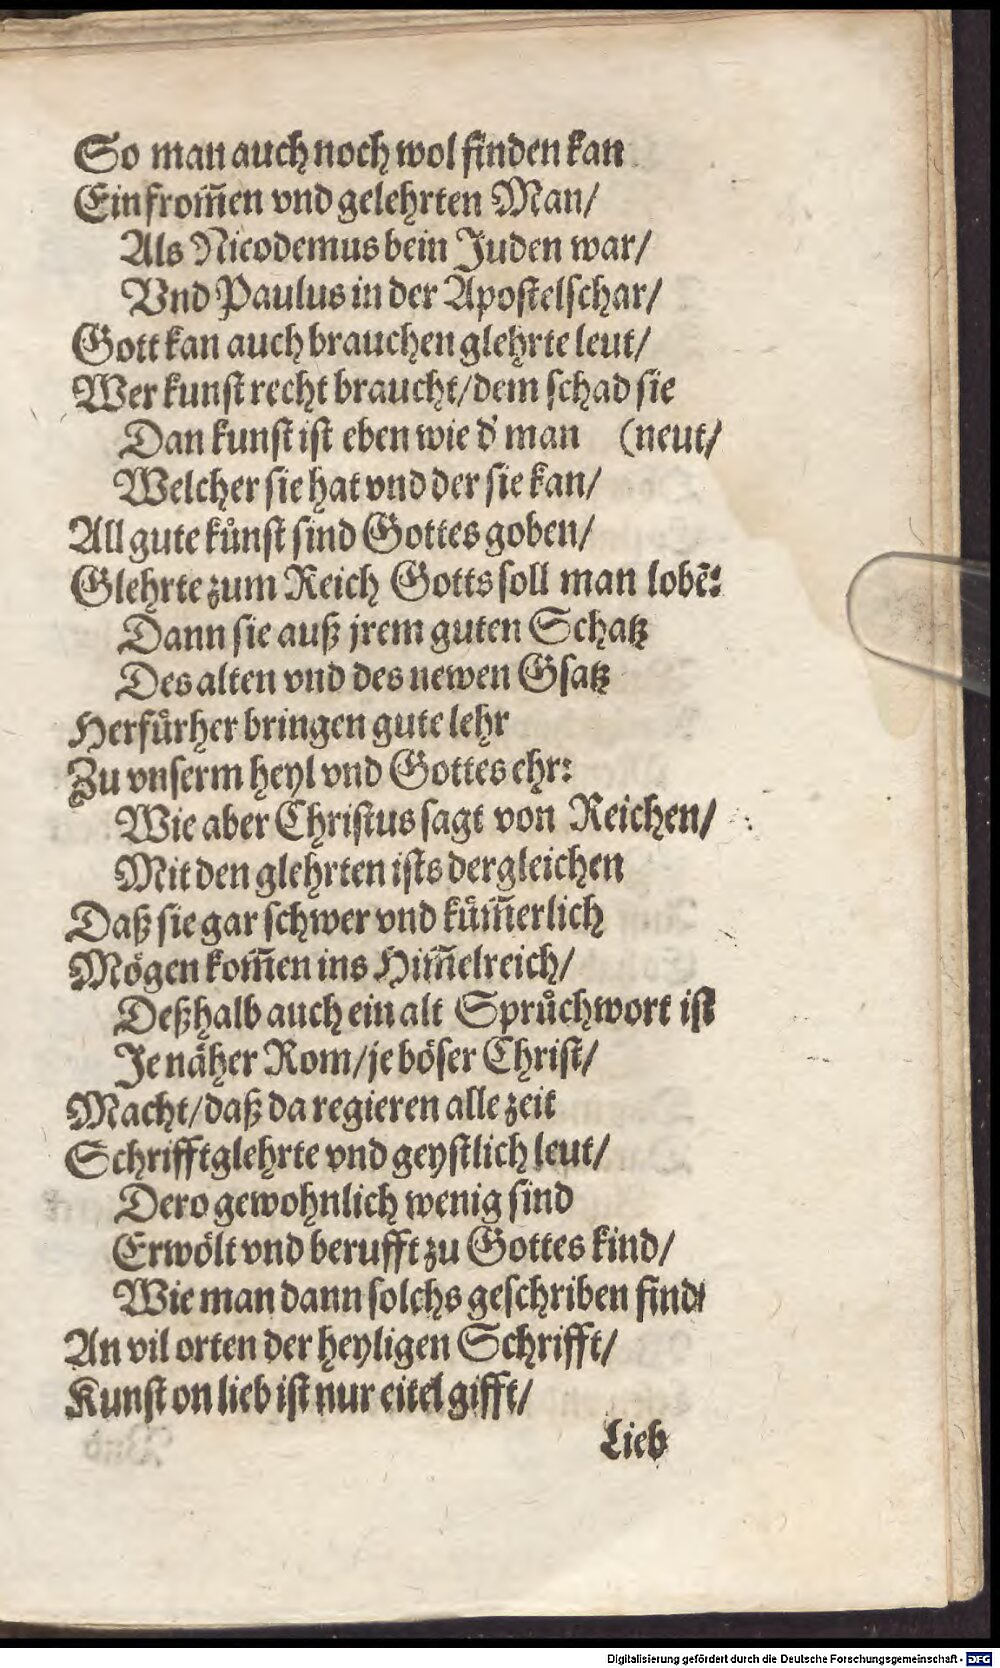 So man auch noch wol finden kan
Ein from̃en vnd gelehrten Man/
Als Nicodemus bein Juden war/
Vnd Paulus in der Apostelschar/
Gott kan auch brauchen glehrte leut/
Wer kunst recht braucht/dem schad sie
Dan kunst ist eben wie d' man (neut/
Welcher sie hat vnd der sie kan/
All gute kuͤnst sind Gottes goben/
Glehrte zum Reich Gotts soll man lobẽ:
Dann sie auß jrem guten Schatz
Des alten vnd des newen Gsatz
Herfuͤrher bringen gute lehr
Zu vnserm heyl vnd Gottes ehr:
Wie aber Christus sagt von Reichen/
Mit den glehrten ists dergleichen
Daß sie gar schwer vnd kuͤm̃erlich
Moͤgen kom̃en ins Him̃elreich/
Deßhalb auch ein alt Spruͤchwort ist
Je naͤher Rom/je boͤser Christ/
Macht/daß da regieren alle zeit
Schrifftglehrte vnd geystlich leut/
Dero gewohnlich wenig sind
Erwoͤlt vnd berufft zu Gottes kind/
Wie man dann solchs geschriben find/
An vil orten der heyligen Schrifft/
Kunst on lieb ist nur eitel gifft/
Lieb
Digitalisierung gefördert durch die Deutsche Forschungsgemeinschaft - DFG